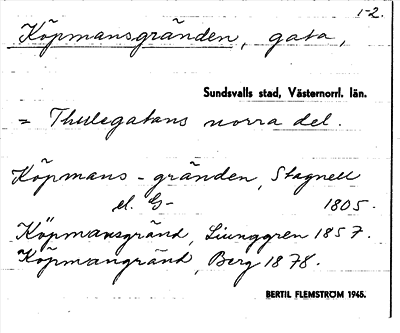 1-2.
Köpmansgränden, gata,
Sundsvalls stad, Västernorrl. län.
= Thulegatans norra del.
Köpmans-gränden, Stagnell
el. G- 1805.
Köpmansgränd, Ljunggren 1857.
Köpmangränd, Berg 1878.
BERTIL FLEMSTRÖM 1945.